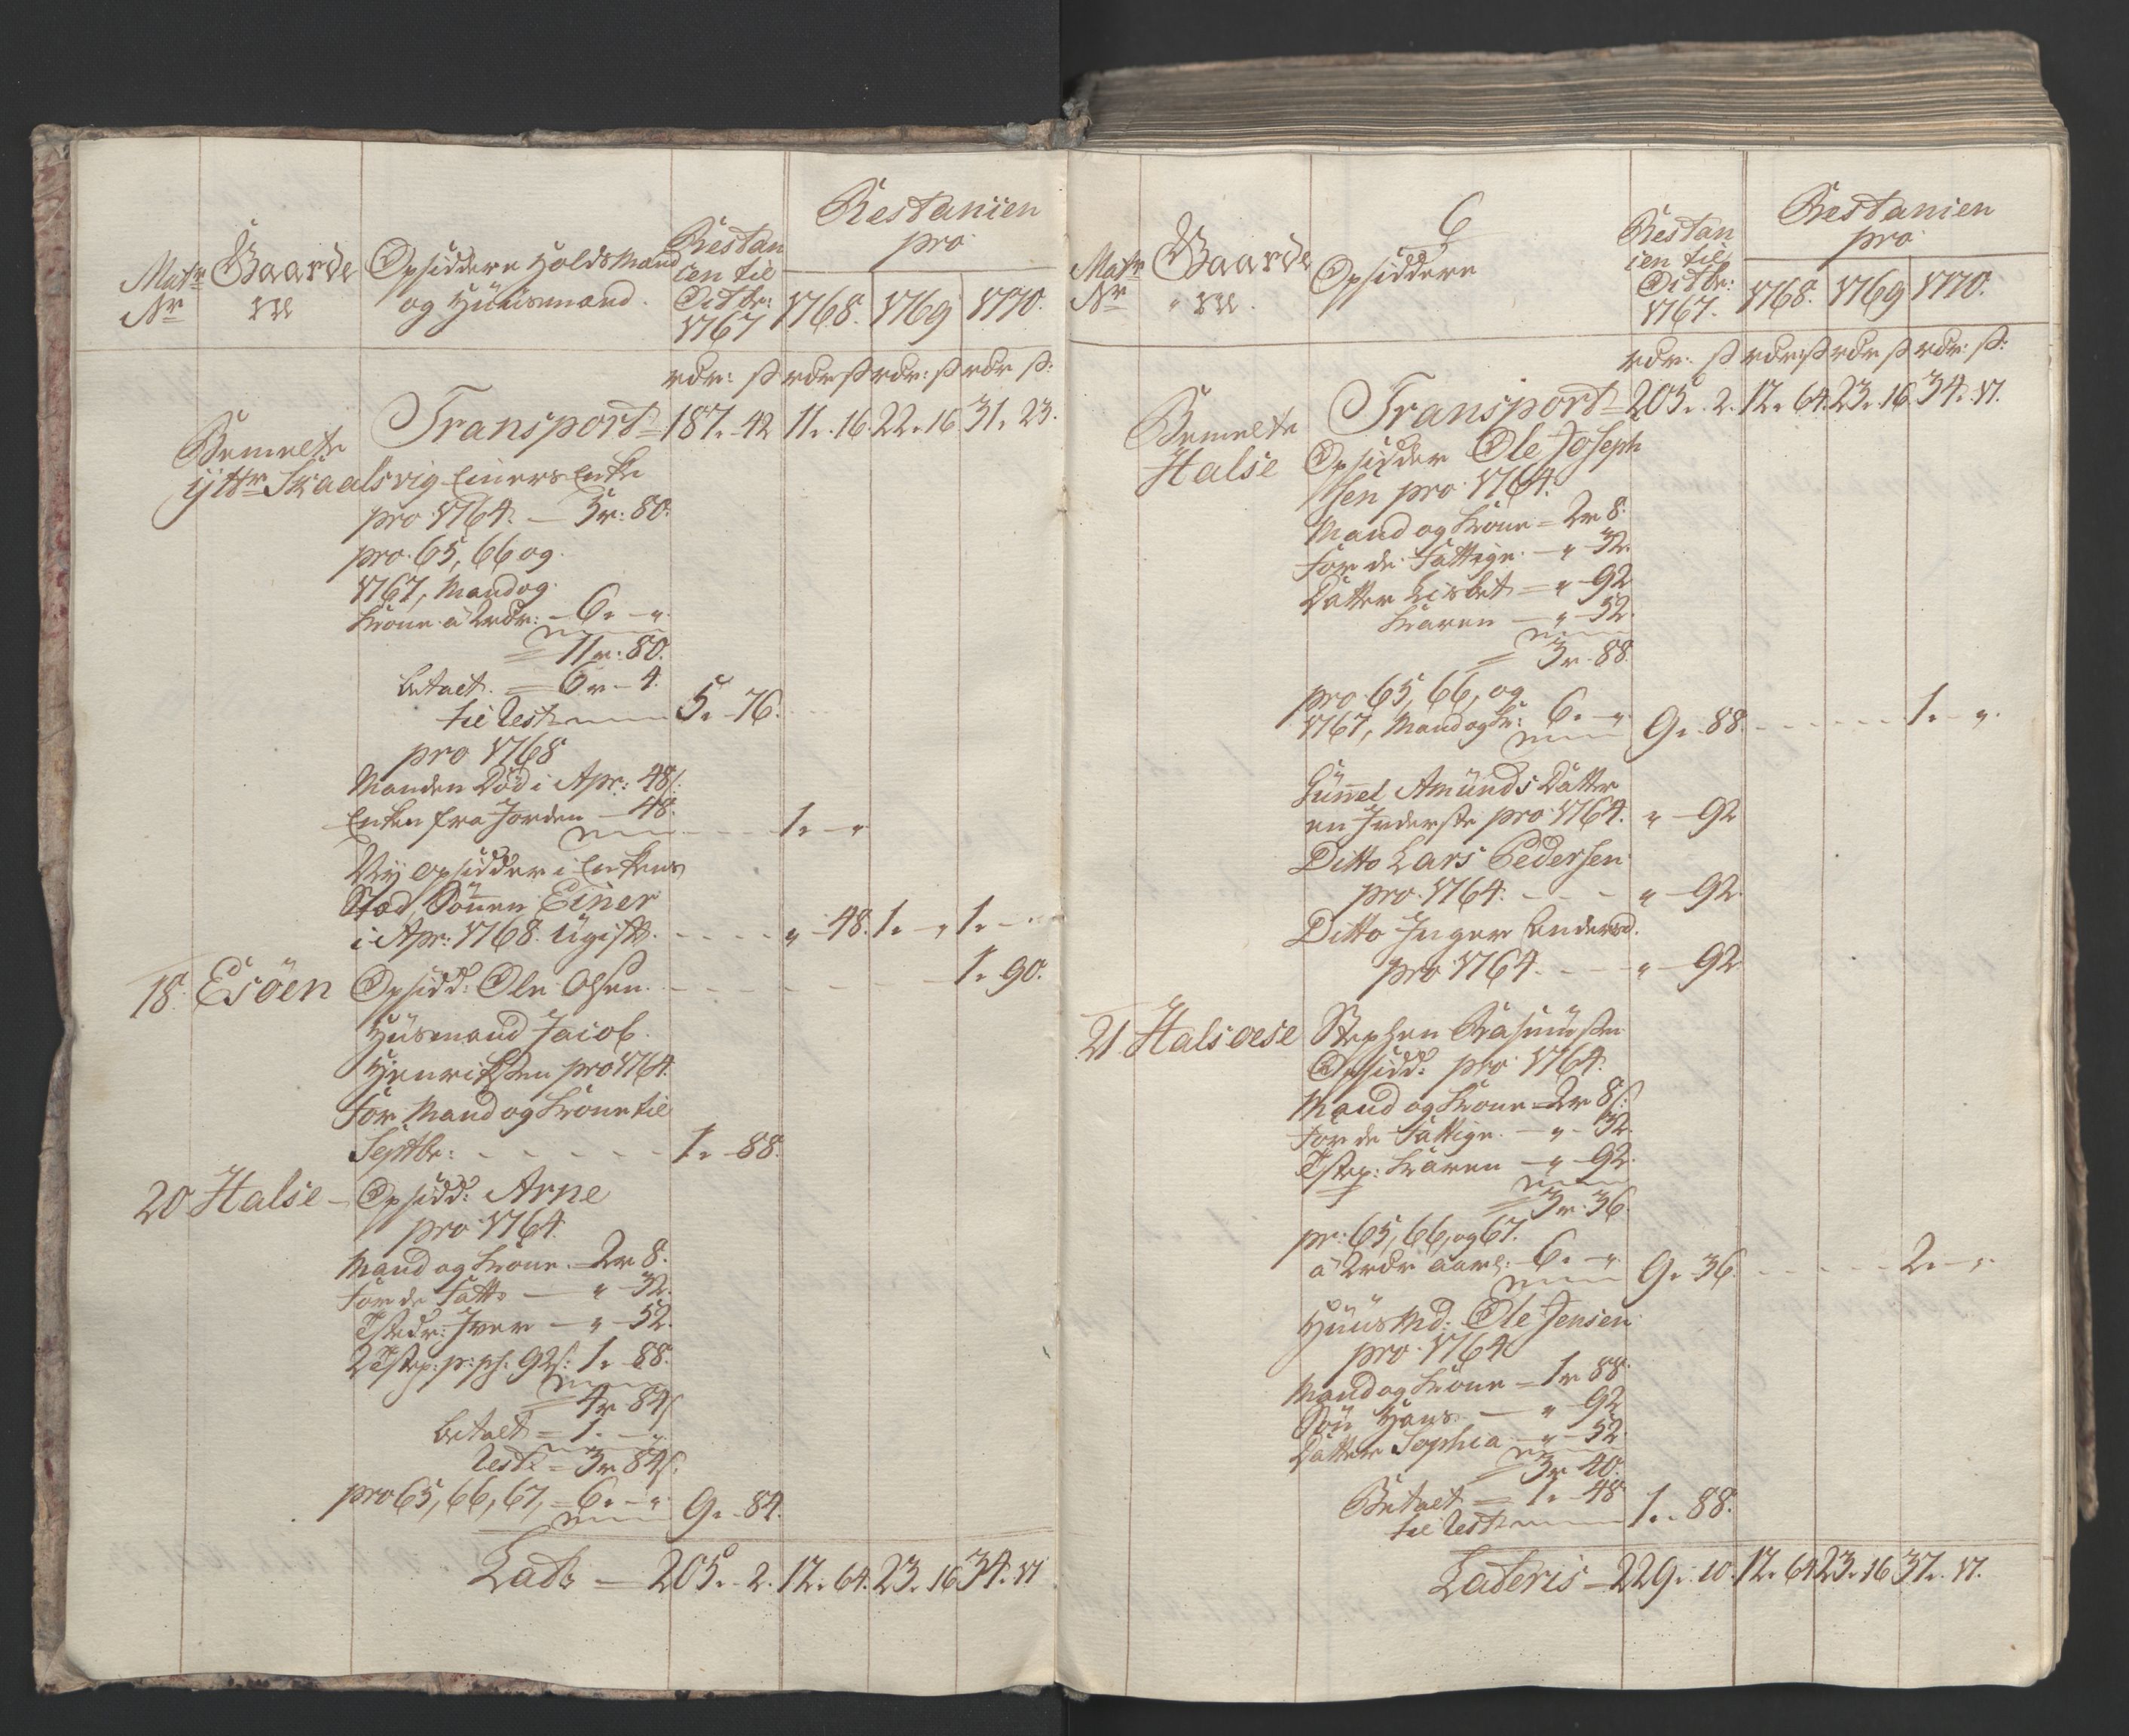 Matr Nr
Gaarde
Opsiddere Holdsmænd
og Hüüsmænd.
Restan
cien til
Octbr:
1767
Restancien
pro
1768. 1769 1770.
rdr: ß rdr ß rdr: ß rdr ß:
Transport = 187. - 42 11. 16. 22. 16 31. 23.
Bemelte
ÿttr Skaalsvig Einers Enke
pro 1764. — 5r: 80.
pro. 65, 66 og
1767, Mand og
Kone a 2rdr: - 6. - "
= 11r: 80.
betalt. = 6r - 4.
til Rest 5. - 76.
pro 1768
Manden Död i Apr: 48ß:
Enken fra Jorden - 48. 1. - "
Nÿ Opsidder i Enkens
Stæd, Sönnen Einer
i Apr: 1768. Ugift. - - - - " - 48. 1. - " 1. - "
18. Esöen Opsidd: Ole Olsen. - - - - 1. 90.
Hüsmand Jacob
Henriksen pro 1764.
for Mand og Kone til
Septbr: - - - - - 1. - 88.
20 Halse - Opsidd: Arne
pro 1764.
Mand og Kone. = 2r 8.
for de Fatt: — " - 32.
Tstedr: Iver — " - 52.
2 Tstep: p: pf: 92ß: 1. - 88.
= 4r 84ß
betalt = 1. - "
Rest = 3r 84ß:
pro 65, 66, 67, = 6. - " 9. - 84.
Lats — 205. - 2. 12. 64. 23. 16 34. 17
6
Matr Nr
Gaarde
Opsiddere
Restan
cien til
Octbr:
1767.
Restancien
pro
1768. 1769 1770.
rdr: ß rdr: ß rdr ß rdr: ß:
Transport = 205. - 2. 12. 64. 23. 16 34. 17.
Bemelte
Halse Opsidder Ole Joseph
sen pro 1764.
Mand og Kone = 2r 8.
for de Fattige. — " 32.
Datter Lisbet = " - 92
Karen — " - 52.
= 3r. 88.
pro 65, 66, og
1767, Mand og K: 6. - " 9. - 88. - - - - - 1. - "
Gunnel Amünds Datter
en Inderste pro 1764. " - 92
Ditto Lars Pedersen
pro. 1764. - - - " - 92.
Ditto Inger Andersd.
pro 1764. - - - " - 92
21. Halsoese Stephen Rasmüssen
Opsidd: pro 1764.
Mand og Kone = 2r 8ß:
for de Fattige. — " - 32.
Tstep: Karen — " - 92.
= 3r 36.
pr: 65, 66, og 67.
a 2rdr aarl: - 6. - " 9. - 36. - - - - - 2. - "
Hüüsmd: Ole Jensen
pro. 1764
Mand og Kone = 1r 88.
Sön Hans. — " - 92
Datter Sophia — " - 52.
= 3r 40.
Betalt = 1. - 48
til Rest 1. - 88.
Lateris = 229. 10. 12. 64 23. 16 37. 17.